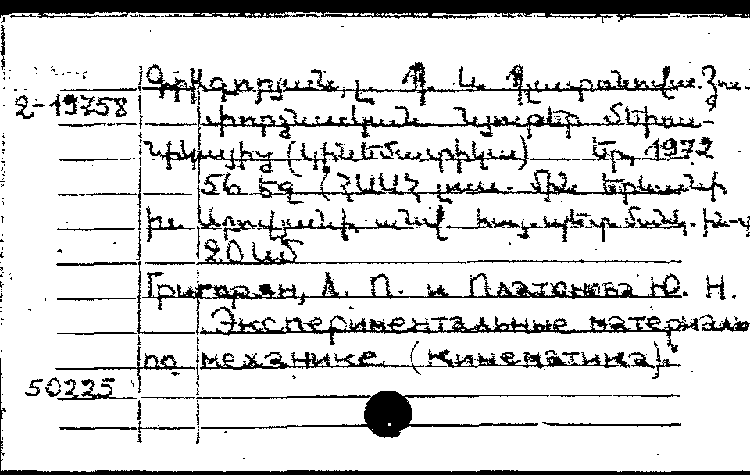 Գրիգորյան, Լ. Պ. և Պլատոնովա Յու.
2-19758
փորձնական նյութեր մեխա-
նիկայից (կինեմատիկա) Եր., 1972
56 էջ (ՀՍՍՀ
20 կմ
Григорян, Л. П. и Платонова Ю. Н.
Экспериментальные материалы
по механике (кинематика).
50225